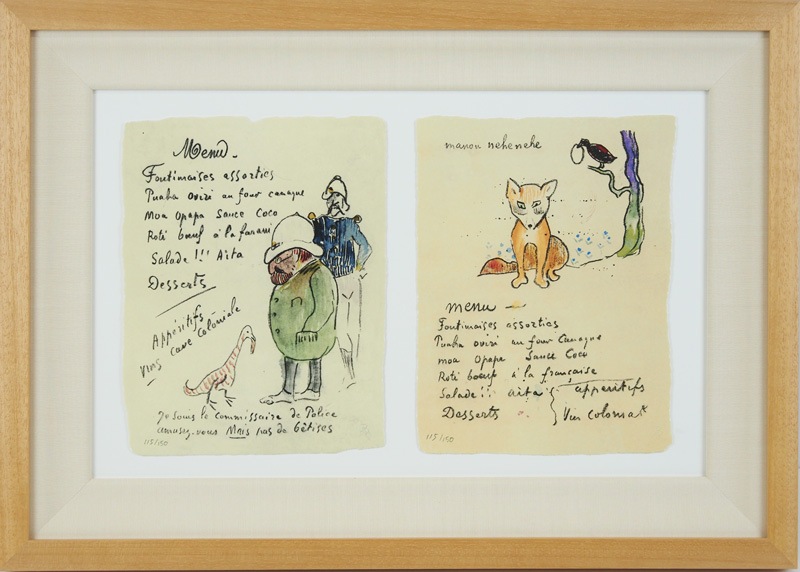 Menu.
Foutimaises assorties
Puaka oviri au four canaque
Moa Opapa Sauce Coco
Roti bœuf à la farani
Salade !!! Aita
Desserts
Appéritifs
Vins cave coloniale
Je sous le commissaire de Police
amusez-vous Mais pas de bêtises
115/150
manou nehenehe
menu
Foutimaises assorties
Puaka oviri au four Canaque
moa Opapa Sauce Coco
Roti bœuf à la française
Salade !! aita
appéritifs
Desserts
Vin colonial
115/150